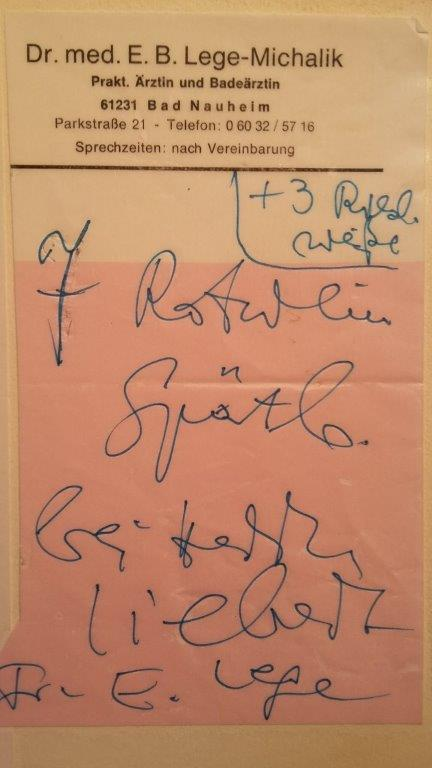 Dr. med. E. B. Lege-Michalik
Prakt. Ärztin und Badeärztin
61231 Bad Nauheim
Parkstraße 21 - Telefon: 0 60 32 / 57 16
Sprechzeiten: nach Vereinbarung
+ 3
7 Rotwein
Spätb.
bei
E. Lege